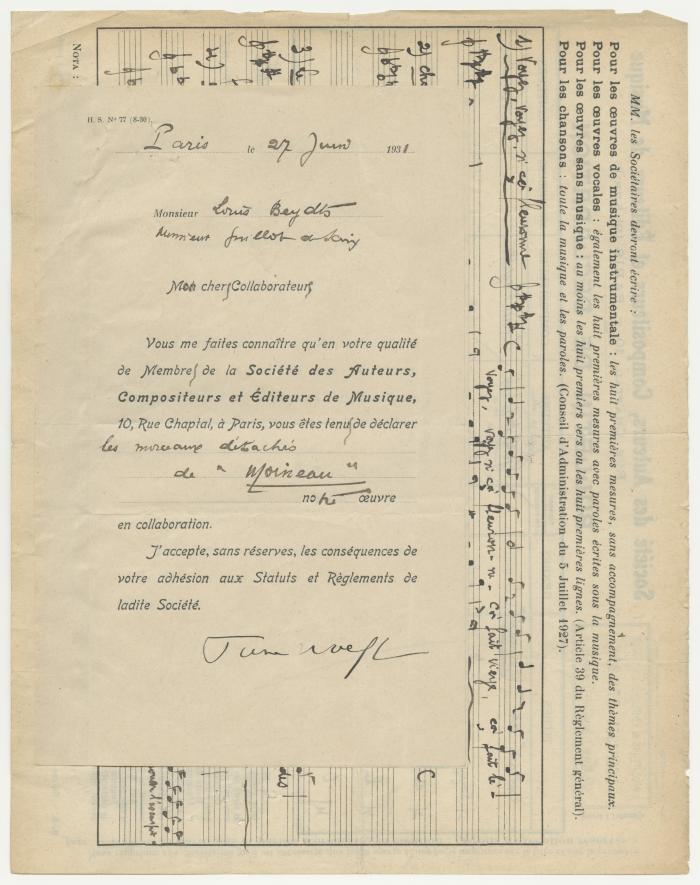 H. S. Nº 77 (8-30).
Paris le 27 Juin 1931
Monsieur Louis Beydts
Monsieur Guillot de Saix
Mon chers Collaborateurs
Vous me faites connaître qu'en votre qualité
de Membres de la Société des Auteurs,
Compositeurs et Éditeurs de Musique,
10, Rue Chaptal, à Paris, vous êtes tenus de déclarer
les morceaux détachés
de " Moineau "
notre œuvre
en collaboration.
J'accepte, sans réserves, les conséquences de
votre adhésion aux Statuts et Règlements de
ladite Société.
MM. les Sociétaires devront écrire :
Pour les œuvres de musique instrumentale : les huit premières mesures, sans accompagnement, des thèmes principaux.
Pour les œuvres vocales : également les huit premières mesures avec paroles écrites sous la musique.
Pour les œuvres sans musique : au moins les huit premiers vers ou les huit premières lignes. (Article 39 du Règlement général).
Pour les chansons : toute la musique et les paroles. (Conseil d'Administration du 5 Juillet 1927).
1) Voyez, voyez, si ça fleuronne
Voyez, voyez si ça fleuron-
ça fait
ça fait
2)
3)
4)
NOTA :